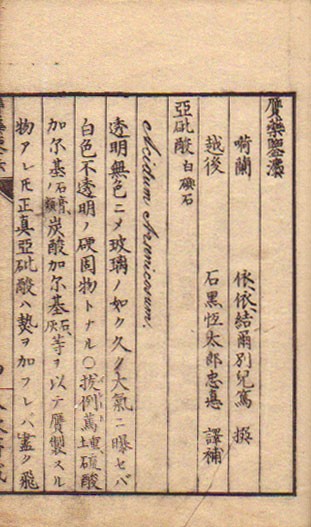 贋藥鑒法
嗬蘭 依依結爾別兒篤 撰
越後 石黒恒太郎忠悳 譯補
亞砒酸 白礜石
Acidum Arsenicosum.
透明無色ニ乄玻璃ノ如ク久ク大氣ニ曝セバ
白色不透明ノ硬固物トナル〇拔例 硫酸
加尓基石膏ノ類炭酸加尓基石灰等ヲ以テ贋製スル
物アレ𪜈正真亞砒酸ハ熱ヲ加フレバ盡ク飛